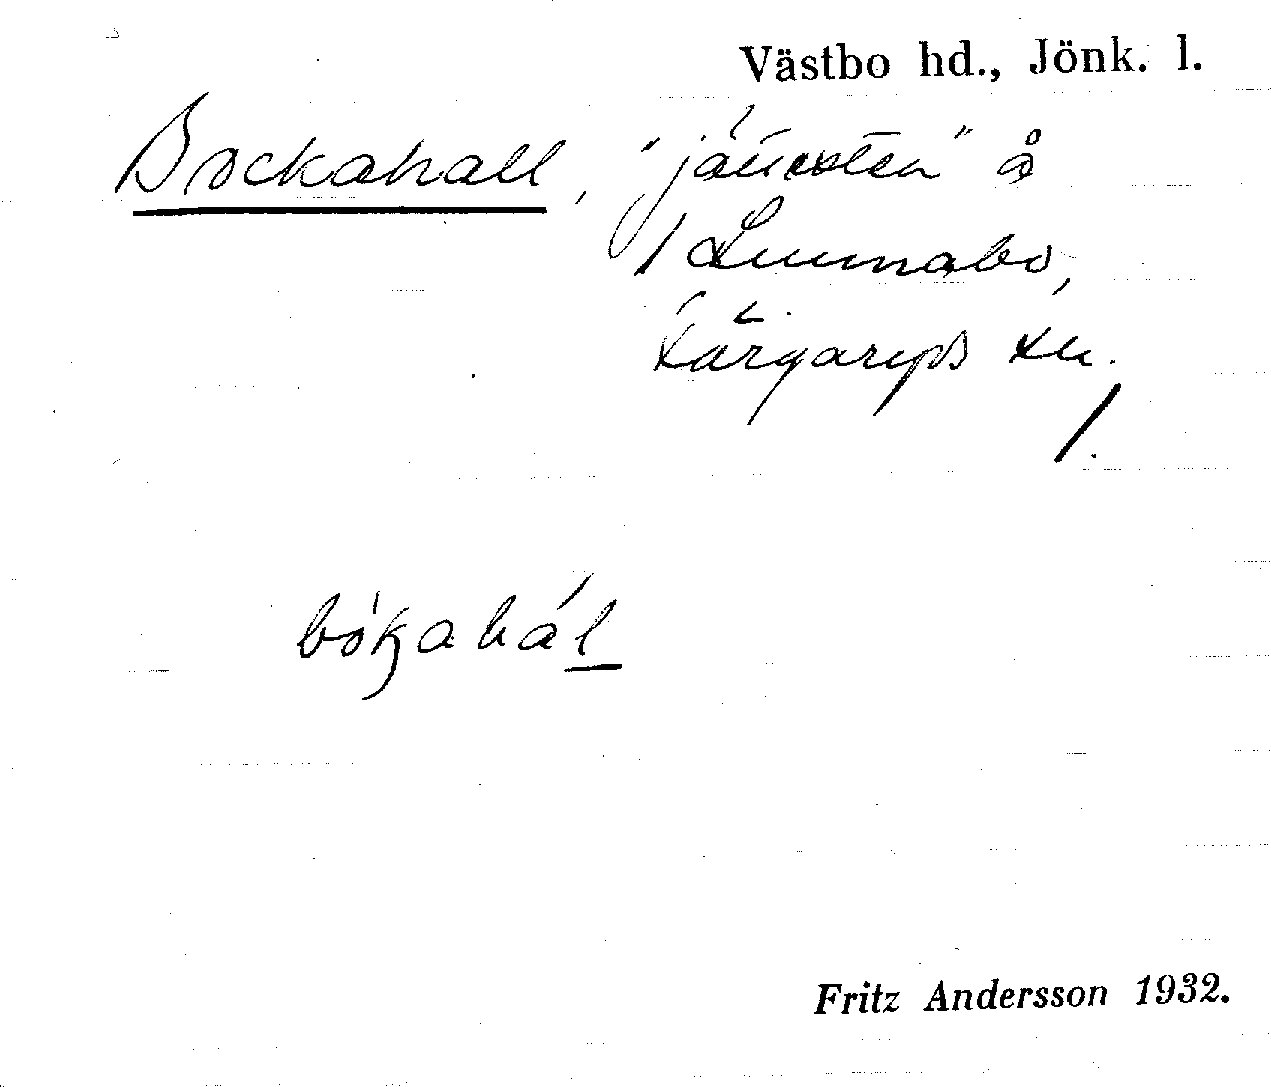 Västbo hd., Jönk. l.
Bockahall, "jättesten" å
Lunnabo,
Kärgaryds sn.
bókahál
Fritz Andersson 1932.